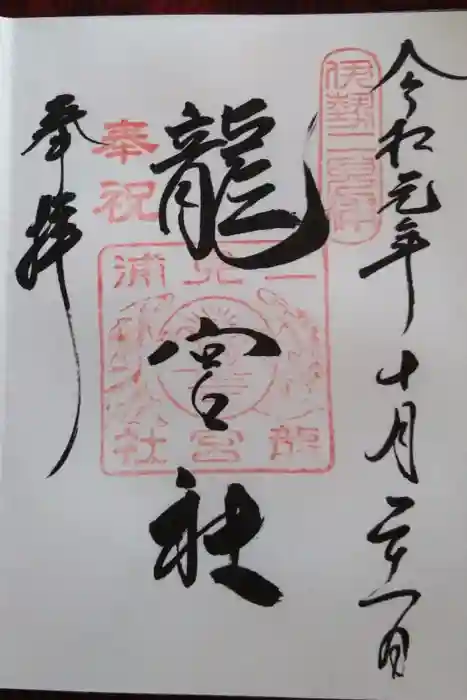 令和元年十月二十一日
伊勢二見
龍宮社
奉祝
二見浦
龍宮社
奉拝